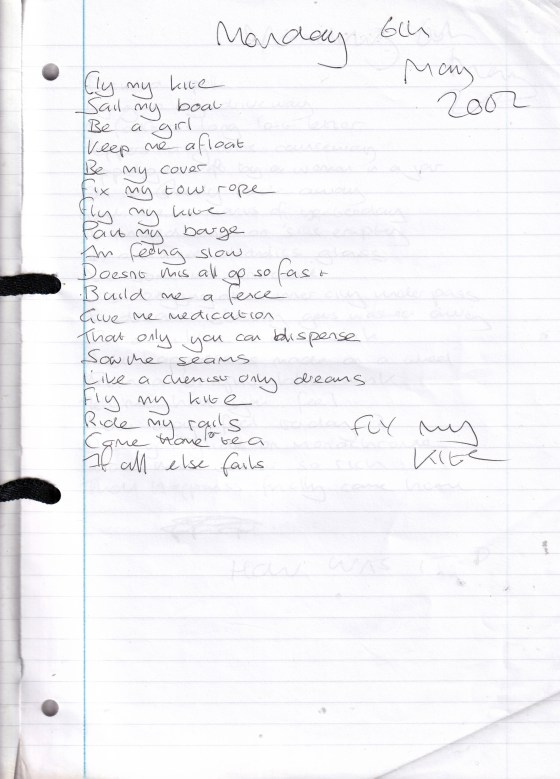 Monday 6th
May
2002
Fly my kite
Sail my boat
Be a girl
Keep me afloat
Be my cover
Fix my tow rope
Fly my kite
Paint my barge
Am feeling slow
Doesnt this all go so fast
Build me a fence
Give me medication
That only you can dispense
Sow the seams
Like a chemist only dreams
Fly my kite
Ride my rails
Come home for tea
If all else fails
FLY my
KITE
HOW WAS I